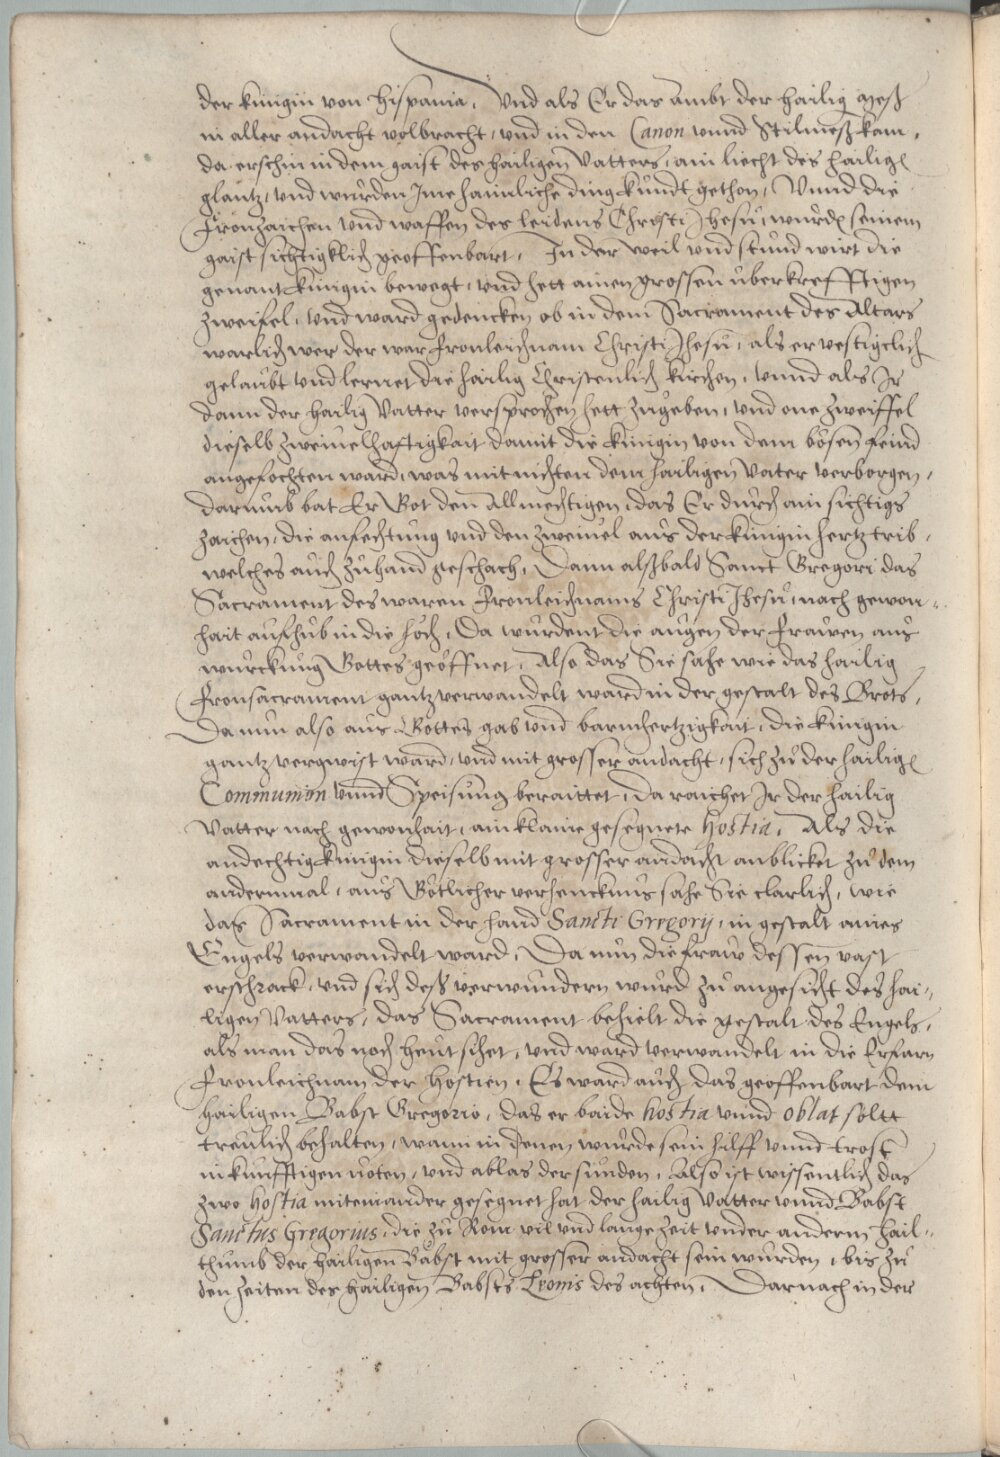 der künigin von Hispania. Vnd als Er das ambt der hailig Meß
in aller andacht volbracht, vnd in den Canon vnnd Stilmeß kam,
da erschin in dem gaist des hailigen Vatters, ain liecht des hailigen
glantz, vnd wurden Ime haimliche ding kundt gethon, Vnnd die
Fronzaichen vnd waffen des leidens Christi Jhesu, wurden seinem
gaist sichtigklich geoffenbart. In der weil vnd stund wirt die
genant künigin bewegt, vnd hett ainen grossen uberkrefftigen
zweifel, vnd ward gedencken ob in dem Sacrament des Altars
warlich wer der war fronleichnam Christi Jhesu, als er vestigclich
gelaubt vnd lernet die hailig Christenlich kirchen, vnnd als Ir
dann der hailig Vatter versprochen hett zugeben, vnd one zweiffel
dieselb zweiuelhafftigkait damit die künigin von dem bösen feind
angefochten ward, was mit nichten dem hailigen Vater verborgen,
darumb bat Er Got den Allmechtigen, das Er durch ain sichtigs
zaichen, die anfechtung vnd den zweiuel aus der künigin hertz trib,
welches auch zuhand geschach, Dann alßbald Sanct Gregori das
Sacrament des waren Fronleichnams Christi Jhesu, nach gewon-
hait aufhub in die höch, Da wurdent die augen der frawen aus
wurckung Gottes geöffnet, Also das Sie sahe wie das hailig
Fronsacrament gantz verwandelt ward in der gestalt des Brots,
Da nun also aus Gottes gab vnd barmhertzigkait, die künigin
gantz vergwist ward, vnd mit grosser andacht, sich zu der hailigen
Communion vnnd Speisung beraittet, da raichet Ir der hailig
Vatter nach gewonhait, ain klaine gesegnete Hostia, Als die
andechtig künigin dieselb mit grosser andacht anblicket zu dem
andernmal, aus Götlicher verhencknus sahe Sie clarlich, wie
das Sacrament in der hand Sancti Gregorij, in gestalt aines
Engels verwandelt ward, Da nun die fraw dessen vast
erschrack, vnd sich deß verwundern wurd zu angesicht des hai-
ligen Vatters, das Sacrament behielt die gestalt des Engels,
als man das noch heut sihet, vnd ward verwandelt in die
Fronleichnam der Hostien, Es ward auch das geoffenbart dem
hailigen Babst Gregorio, das er baide Hostia vnnd Oblat solt
treulich behalten, wann in denen wurde sein hilff vnnd trost
in künfftigen nöten, vnd ablas der sünden, Also ist wissentlich das
zwo Hostia miteinander gesegnet hat der hailig Vatter vnnd Babst
Sanctus Gregorius, die zu Rom vil vnd lange zeit vnder anderm hail-
thumb der hailigen Bäbst mit grosser andacht sein wurden, bis zu
den zeiten des hailigen Babsts Leonis des achten, Darnach in der